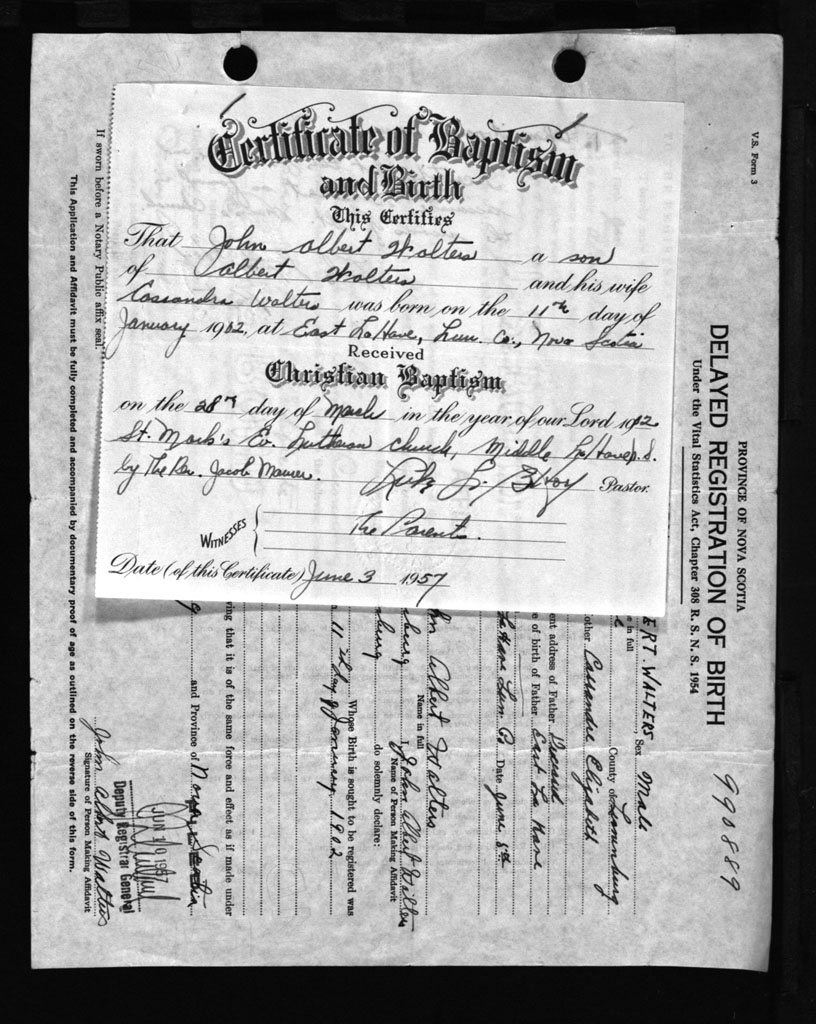 Certificate of Baptism
and Birth
This Certifies
That John Albert Walters a son
of Albert Walters and his wife
Cassandra Walters was born on the 11th day of
January 1902, at East LaHave, Lun. Co., Nova Scotia
Received
Christian Baptism
on the 28th day of March in the year of our Lord 1902
St. Mark's Ev. Lutheran Church, Middle LaHave N.S.
by The Rev. Jacob Maurer. Pastor.
WITNESSES The Parents.
Date (of this Certificate) June 3 1957
V.S. Form 3
PROVINCE OF NOVA SCOTIA
DELAYED REGISTRATION OF BIRTH
Under the Vital Statistics Act, Chapter 308 R. S. N. S. 1954
990889
ERT WALTERS Sex Male
e in full
County of Lunenburg
other Cassandra Elizabeth
ent address of Father Deceased
e of birth of Father East La Have
La Have Lun. Co Date June 5th
hn Albert Walters
Name in full
burg I, John Albert Walters
Name of Person Making Affidavit
burg do solemnly declare:
Whose Birth is sought to be registered was
11th day of January 1902
ving that it is of the same force and effect as if made under
and Province of Nova Scotia
JUN 10 1957
Deputy Registrar General
John Albert Walters
Signature of Person Making Affidavit
If sworn before a Notary Public affix seal.
This Application and Affidavit must be fully completed and accompanied by documentary proof of age as outlined on the reverse side of this form.